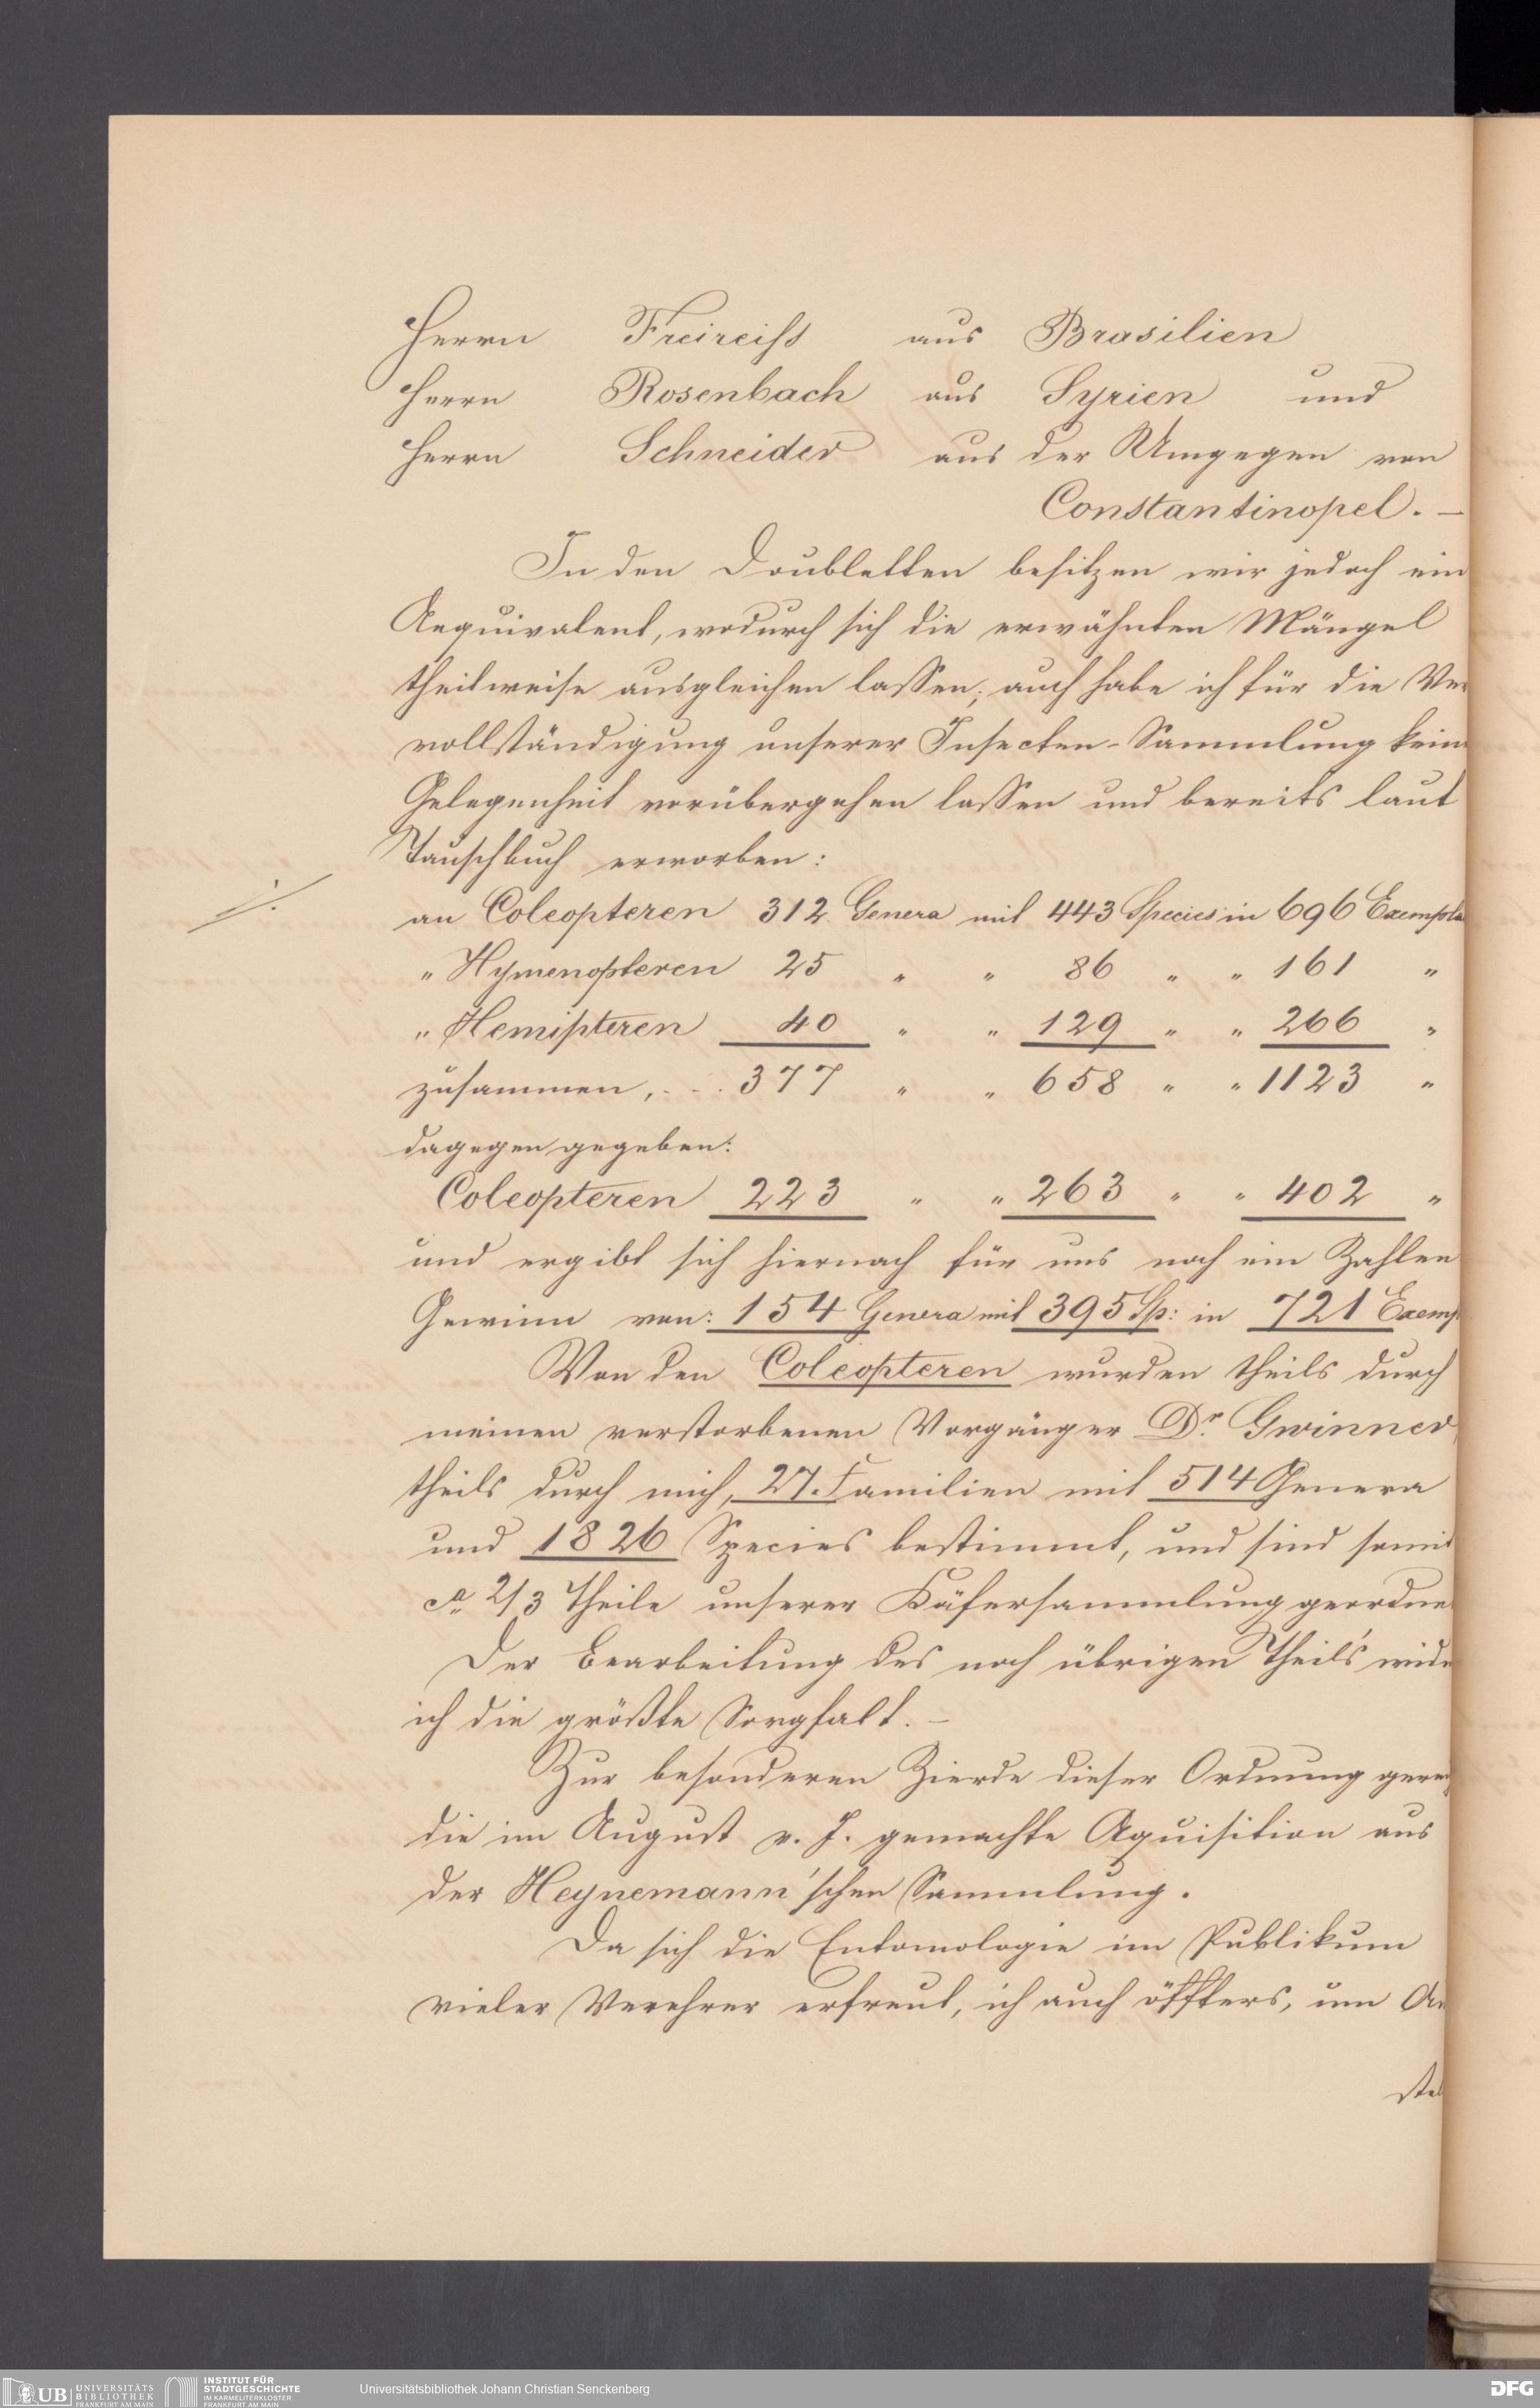 Herrn Freireiss aus Brasilien
Herrn Rosenbach aus Syrien und
Herrn Schneider aus der Umgegen von
Constantinopel. –
In den Doubletten besitzen wir jedoch ein
Aequivalent, wodurch sich die erwähnten Mängel
theilweise ausgleichen lassen; auch habe ich für die Ver
vollständigung unserer Insecten-Sammlung kein
Gelegenheit vorübergehen lassen und bereits laut
Tauschbuch erworben:
an Coleopteren 312 Genera mit 443 Species in 696 Exempla
" Hymenopteren 25 " " 86 " " 161 "
" Hemipteren 40 " " 129 " " 266 "
zusammen, . . . 377 " " 658 " " 1123 "
dagegen gegeben:
Coleopteren 223 " " 263 " " 402 "
und ergibt sich hiernach für uns noch ein Zahlen
Gewinn von: 154 Genera mit 395 Sp: in 721 Exemp
Von den Coleopteren wurden theils durch
meinen verstorbenen Vorgänger Dr. Gwinner
theils durch mich, 27. Familien mit 514 Genera
und 1826 Species bestimmt, und sind somit
ca 2/3 Theile unserer Käfersammlung geordne
Der Bearbeitung des noch übrigen Theils wid
ich die größte Sorgfalt. –
Zur besonderen Zierde dieser Ordnung gerei
die im August v. J. gemachte Aquisition aus
der Heynemann'schen Sammlung.
Da sich die Entomologie im Publikum
vieler Verehrer erfreut, ich auch öffters, um An
ste
UB UNIVERSITÄTS BIBLIOTHEK FRANKFURT AM MAIN
INSTITUT FÜR STADTGESCHICHTE IM KARMELITERKLOSTER FRANKFURT AM MAIN
Universitätsbibliothek Johann Christian Senckenberg
DFG